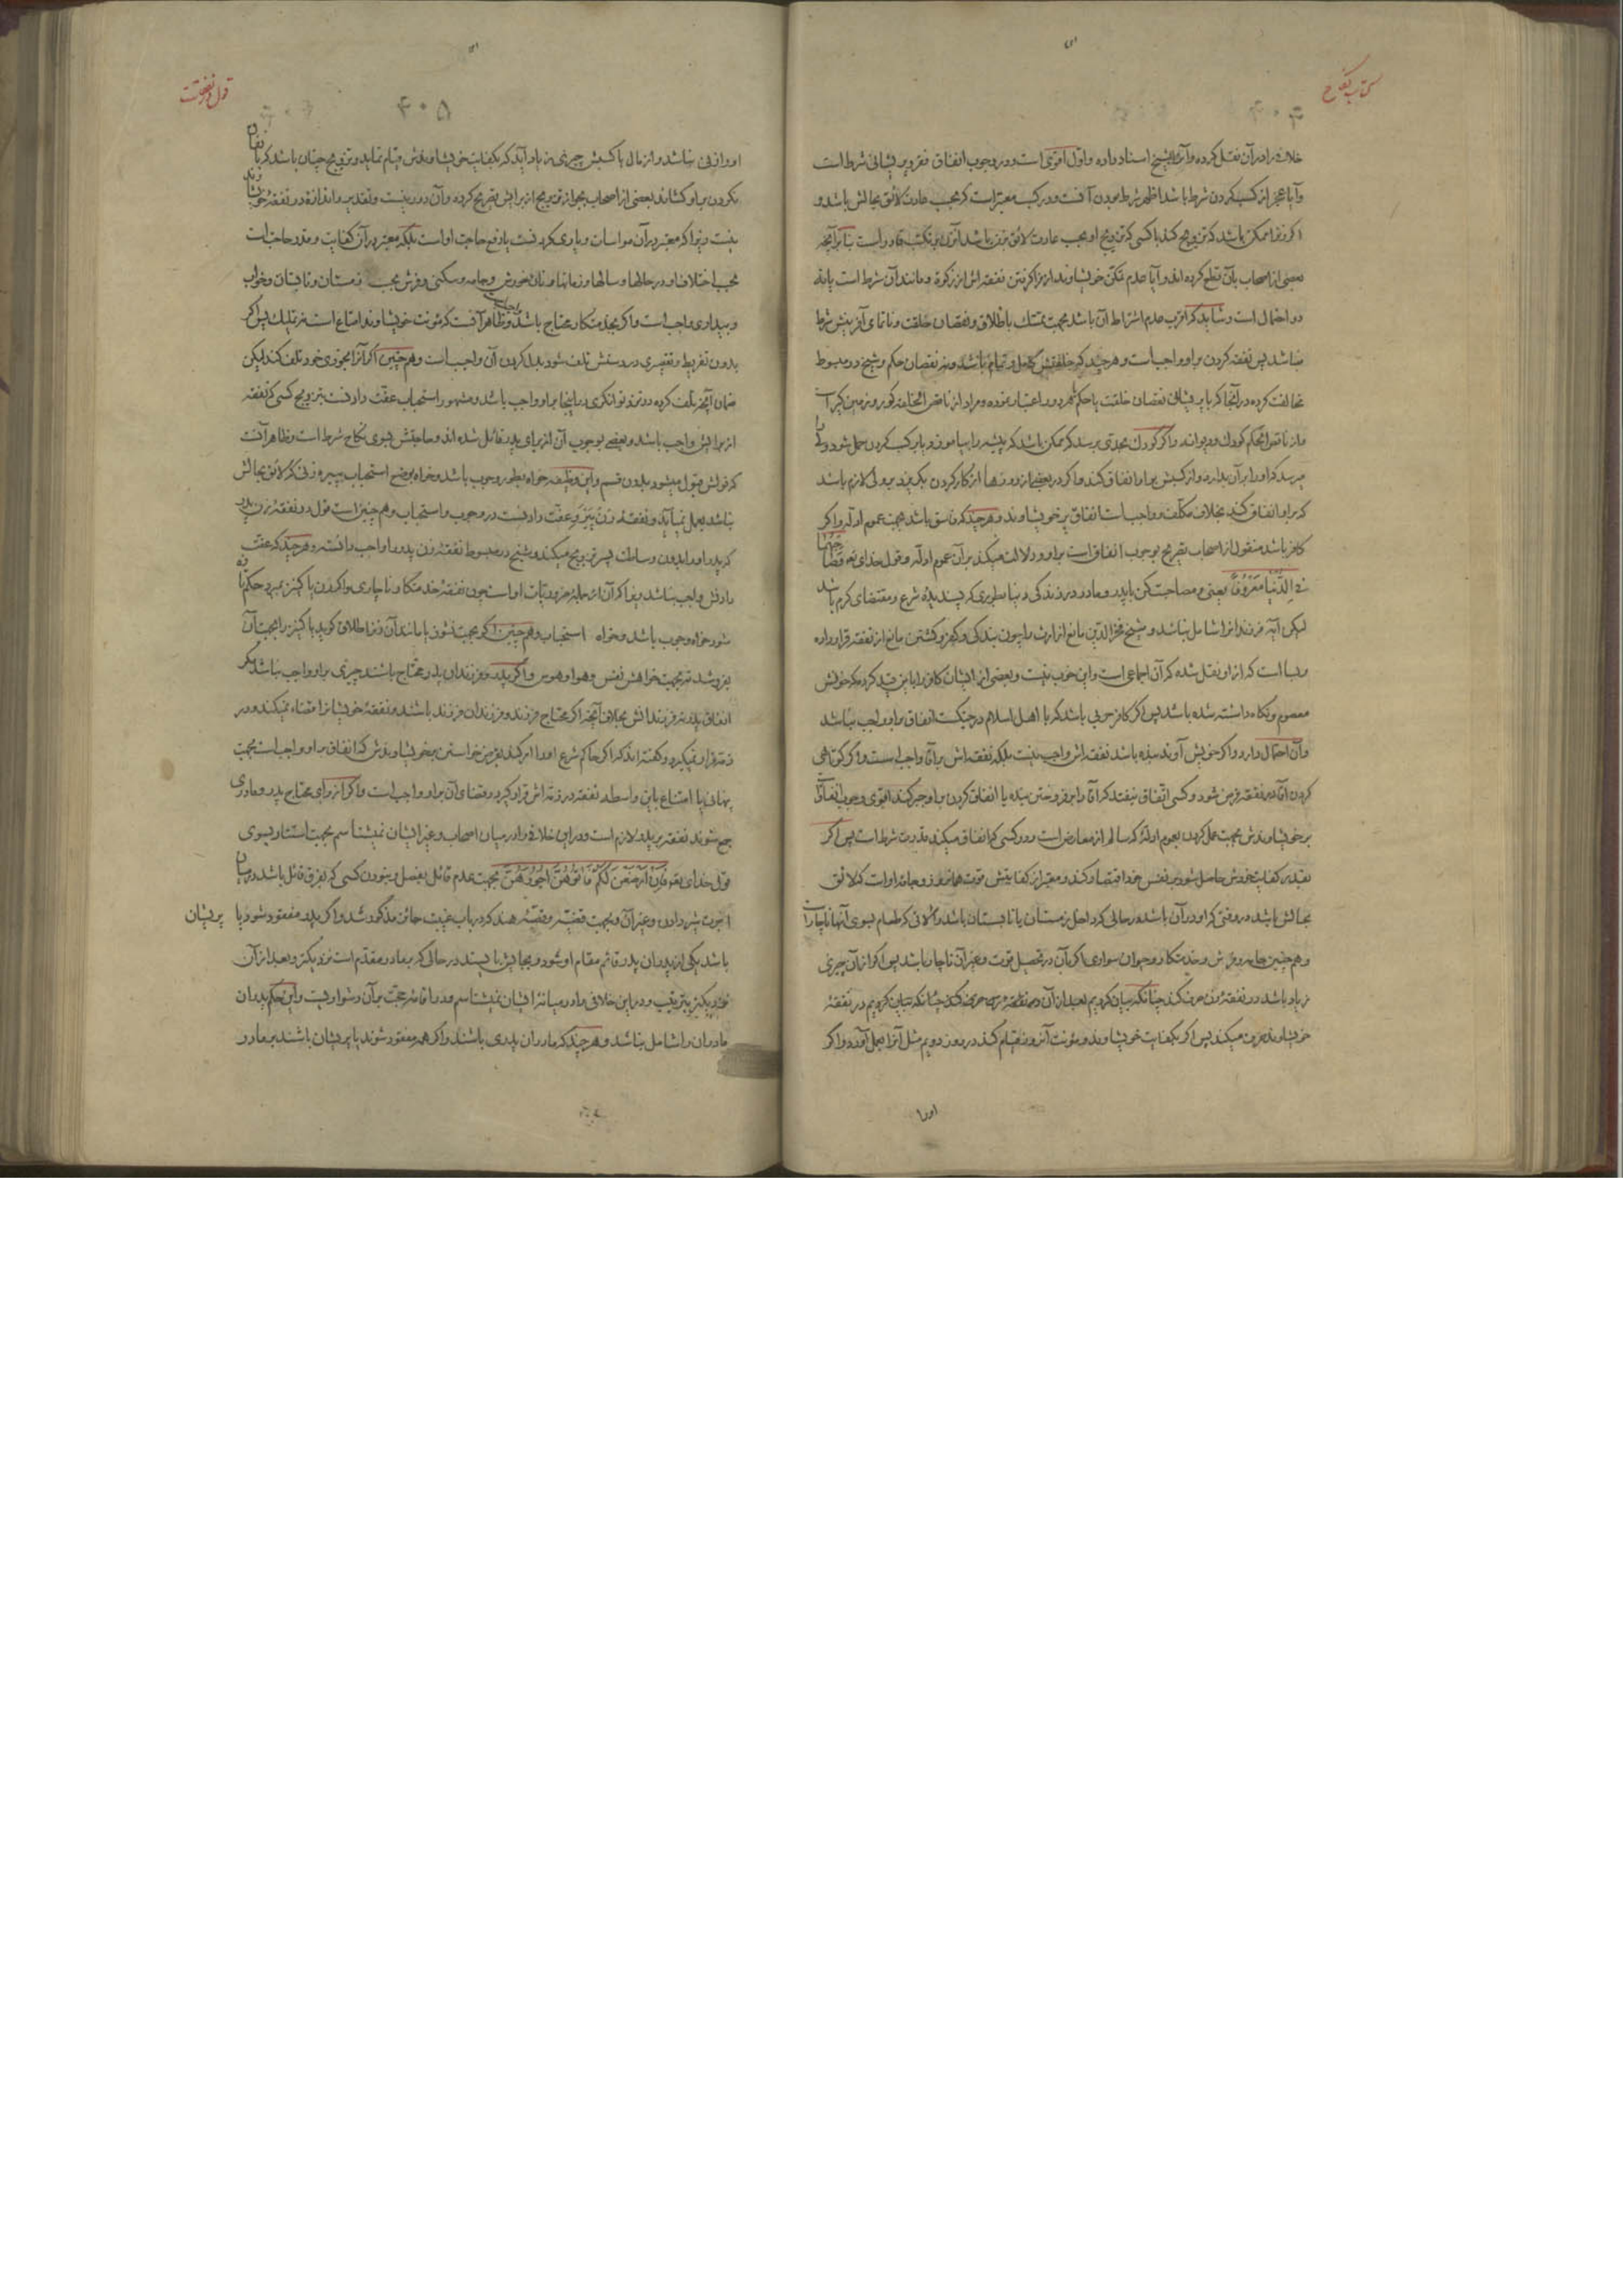 کتاب نکاح
خلاف را در آن نقل کرده و آنرا بشیخ اسناد داده و اول اقوی است و در وجوب انفاق فقر و پریشانی شرط است
و آیا عجز از کسب کردن شرط باشد اظهر شرط بودن آنست و در کسب معتبر است که بحسب عادت لائق بحالش باشد و
اکر زنرا ممکن باشد که تزویج کند با کسی که تزویج او بحسب عادت لائق بزن باشد بنا بر آنچه
بعضی از اصحاب بآن قطع کرده اند و آیا عدم تمکن خویشاوند از فرا کرفتن نفقه اش از زکوة و مانند آن شرط است یا نه
دو احتمال است و شاید که اقرب عدم اشتراط آن باشد بجهت تمسک باطلاق و نقصان خلقت و ناتمامی آفرینش شرط
نباشد پس نفقه کردن بر او واجب است و هر چند که خلقتش کامل و تمام باشد و نه نقصان حکم و شیخ در مبسوط
مخالفت کرده در آنجا که با پریشانی نقصان خلقت یا حکم هر دو را اعتبار نموده و مراد از ناقص الخلقه کور و زمین کیر است
و از ناقص الحکم کودک و دیوانه و اکر کودک بحدی برسد که ممکن باشد که پیشه را بیاموزد یا بر کسب کردن حمل شود ولی
میرسد که او را بر آن بدارد و از کسبش بر او انفاق کند و اکر در بعضی از روزها از کار کردن بکریزد بر ولی لازم باشد
که بر او انفاق کند بخلاف مکلف و واجب است انفاق بر خویشاوند و هر چند که فاسق باشد بجهت عموم ادله و اکر
کافر باشد منقول از اصحاب تصریح بوجوب انفاق است بر او و دلالت میکند بر آن عموم ادله و قول خدای تع وَصَاحِبْهُمَا
فِی الدُّنْیَا مَعْرُوفًا یعنی و مصاحبت کن با پدر و مادر در زندکی دنیا بطوری که پسندیده شرع و مقتضای کرم باشد
لیکن آیه فرزند را شامل نباشد و شیخ فخر الدین مانع از ارث را چون بندکی و کفر و کشتن مانع از نفقه قرار داده
و بسا است که از او نقل شده که آن اجماعی است و این خوب نیست و بعضی از ایشان کافر را باین قید کرده که خونش
معصوم و نکاه داشته شده باشد پس اکر کافر حربی باشد که با اهل اسلام در جنک است انفاق بر او واجب نباشد
و آن احتمال دارد و اکر خویش آوند بنده باشد نفقه اش واجب نیست بلکه نفقه اش بر آقا واجب است و اکر کوتاهی
کردن آقا در نفقه فرض شود و کسی اتفاق نیفتد که آقا را بر فروختن بنده یا انفاق کردن بر او جبر کند اقوی وجوب انفاق
بر خویشاوندش بجهت عمل کردن بعموم ادلهٔ که سالم از معارض است و در کسی که انفاق میکند قدرت شرط است پس اکر
بقدر کفایت خودش حاصل شود بر نفس خود اقتصار کند و معتبر از کفایتش قوت همانروز و جامه او است که لائق
بحالش باشد در وقتی که او در آن باشد در حالی که داخل زمستان یا تابستان باشد و آلاتی که طعام بسوی آنها ناچار است
و هم چنین جامه و فرش و خدمتکار و حیوان سواری اکر بآن در تحصیل قوت و غیر آن ناچار باشد پس اکر از آن چیزی
زیاد باشد در نفقهٔ زن صرف کند چنانکه بیان کردیم بعد از آن در نفقهٔ
خویشاوند صرف میکند پس اکر بکفایت خویشاوند و مؤنت آنروز قیام کند در روز دویم مثل آنرا بعمل آورد و اکر
اورا
قول در نفقات
۴۰۵
او وافی نباشد و از مال یا کسبش چیزی زیاد آید که بکفایت خویشاوندش قیام نماید و تزویج چنان باشد که
نکردن بر او بعضی از اصحاب بجواز تزویج از برایش تصریح کرده و آن دور نیست و تقدیر و اندازه در نفقهٔ خویشاوند
نیست زیرا که معتبر در آن مواسات و یاوری کردنست یا دفع حاجت او است بلکه معتبر در آن کفایت و قدر حاجت است
بحسب اختلاف او در حالها و سالها و زمانها و نان خورش و جامه و مسکنی و فرش بحسب زمستان و تابستان و خواب
و بیداری واجب است و اکر بخدمتکار محتاج باشد و ظاهر آنست که مؤنت خویشاوند امتاع است نه تملیک پس اکر
بدون تفریط و تقصیری در دستش تلف شود بدل کردن آن واجب است و هم چنین اکر آنرا بخودی خود تلف کند لیکن
ضمان آنچه تلف کرده در نزد توانکری در اینجا بر او واجب باشد و مشهور استحباب عفت دادنست بتزویج کسی که نفقه
از برایش واجب باشد و بعضی بوجوب آن از برای پدر قائل شده اند و حاجتش بسوی نکاح شرط است و ظاهر آنست
که قولش قبول میشود بدون قسم و این وظیفه خواه بطور وجوب باشد و خواه بوضع استحباب بپیره زنی که لائق بحالش
نباشد بعمل نمیآید و نفقهٔ زن نیز و عفت دادنست در وجوب و استحباب و هم چنین است قول در نفقهٔ زن پدر
که پدر او را بدون وساطت پسر تزویج میکند و شیخ در مبسوط نفقهٔ زن پدر را واجب دانسته و هر چند که عفت
دادنش واجب نباشد زیرا که آن از جمله ضروریات او است چون نفقهٔ خدمتکار و ناچاری و اکر زن یا کنیز بمیرد حکم تازه
شود خواه وجوب باشد و خواه استحباب و هم چنین اکر بجهت نشوز یا مانند آن زنرا طلاق کوید یا کنیز را بجهت آن
بفروشد نه بجهت خواهش نفس و هوا و هوس و اکر پدر و فرزندان پدر محتاج باشند چیزی بر او واجب نباشد مکر
انفاق پدر نه فرزندانش بخلاف آنچه اکر محتاج فرزند و فرزندان فرزند باشند و نفقهٔ خویشانرا قضاء نمیکند و در
ذمه قرار نمیکیرد و کفته اند که اکر حاکم شرع او را امر کند بقرض خواستن بر خویشاوندش که انفاق بر او واجب است بجهت
پنهانی یا امتناع باین واسطه نفقه در ذمه اش قرار کیرد و قضای آن بر او واجب است و اکر از برای محتاج پدر و مادری
جمع شوند نفقه بر پدر لازم است و در این خلافی را در میان اصحاب و غیر ایشان نمیشناسم بجهت استناد بسوی
قول خدای تع فَإِنْ أَرْضَعْنَ لَكُمْ فَآتُوهُنَّ أُجُورَهُنَّ بجهت عدم قائل بفصل و نبودن کسی که بفرق قائل باشد در میان
اجرت شیر دادن و غیر آن و بجهت قضیه و قصهٔ هند که در باب غیبت جائز مذکور شد و اکر پدر مفقود شود یا پریشان
باشد یکی از پدران پدر قائم مقام او شود و بجایش بایستد در حالی که بر مادر مقدم است نزدیکتر و بعد از آن
نزدیکتر بترتیب و در این خلافی را در میانهٔ ایشان نمیشناسم و در اقامه حجت بر آن دشواریست و این حکم پدران
مادران را شامل نباشد و هر چند که مادران پدری باشند و اکر همه مفقود شوند یا پریشان باشند بر مادر